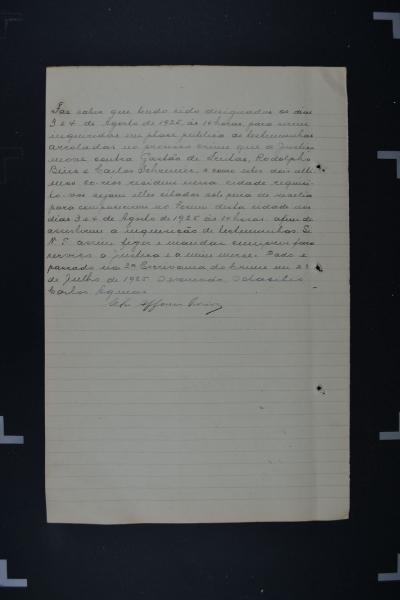 Faz saber que tendo sido designados os dias
3 e 4 de Agosto de 1925 ás 14 horas, para serem
inqueridas em phase publica as testemunhas
arroladas no processo crime que a Justiça
move contra Gastão de Freitas, Rodolpho
e Carlos Schreiner, e como estes dois ulti-
mos co-réos residem nessa cidade requisi-
to-vos sejam elles citados sob pena de revelia
para comparecerem no Forum desta cidade nos
dias 3 e 4 de Agosto de 1925 ás 14 horas, afim de
assistirem a inquirição de testemunhas. Se
assim fizer e mandar cumprir fará
serviço a Justiça e a mim mercê. Dado e
passado na 2ª Escrivania do Crime em 28
de Julho de 1925.
Carlos
Affonso